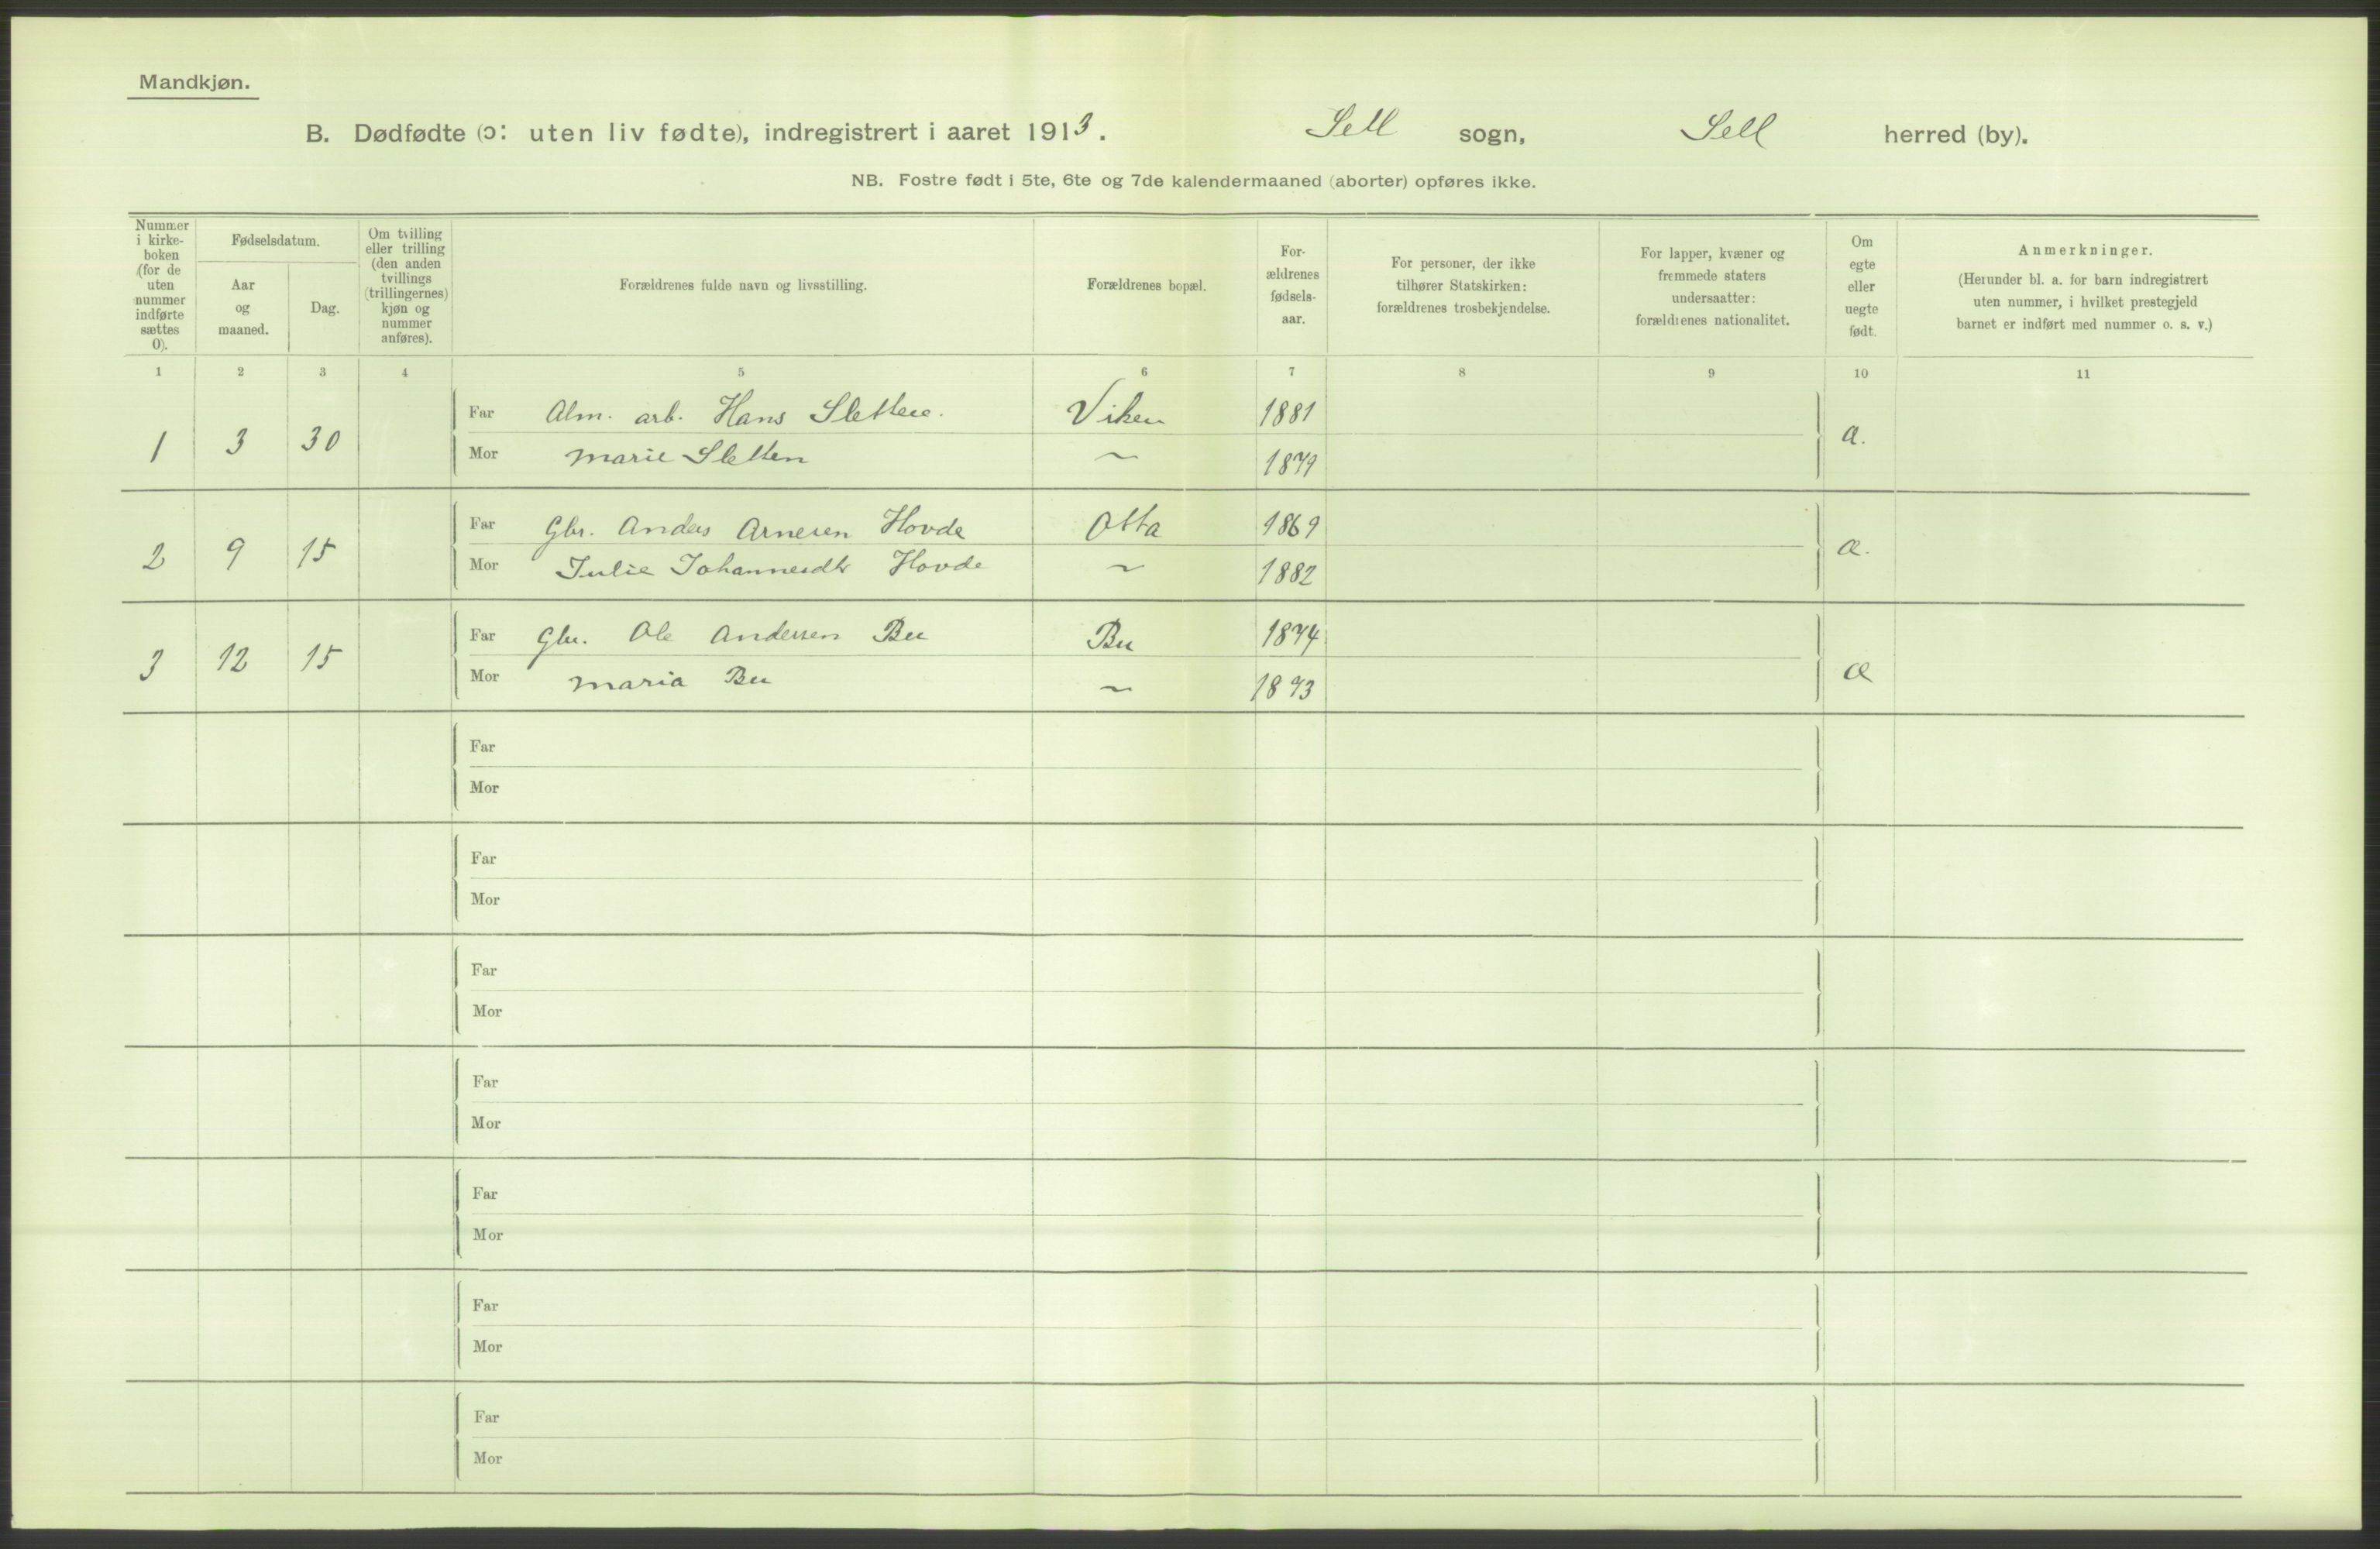 Mandkjøn.
B. Dødfødte (ɔ: uten liv fødte), indregistrert i aaret 1913. Sell sogn, Sell herred (by).
NB. Fostre født i 5te, 6te og 7de kalendermaaned (aborter) opføres ikke.
Nummer i kirkeboken (for de uten nummer indførte sættes 0).
Fødselsdatum.
Aar og maaned.
Dag.
Om tvilling eller trilling (den anden tvillings (trillingernes) kjøn og nummer anføres).
Forældrenes fulde navn og livsstilling.
Forældrenes bopæl.
For-ældrenes fødsels-aar.
For personer, der ikke tilhører Statskirken: forældrenes trosbekjendelse.
For lapper, kvæner og fremmede staters undersaatter: forældrenes nationalitet.
Om egte eller uegte født.
Anmerkninger.
(Herunder bl. a. for barn indregistrert uten nummer, i hvilket prestegjeld barnet er indført med nummer o. s. v.)
1 2 3 4 5 6 7 8 9 10 11
1 3 30 Far Alm. arb. Hans Sletten. Viken 1881 a.
Mor Marie Sletten ~ 1879
2 9 15 Far Gbr. Anders Arnesen Hovde Otta 1869 æ.
Mor Julie Johannesdtr Hovde ~ 1882
3 12 15 Far Gbr. Ole Andersen Bu Bu 1874 æ
Mor Maria Bu ~ 1873
Far
Mor
Far
Mor
Far
Mor
Far
Mor
Far
Mor
Far
Mor
Far
Mor